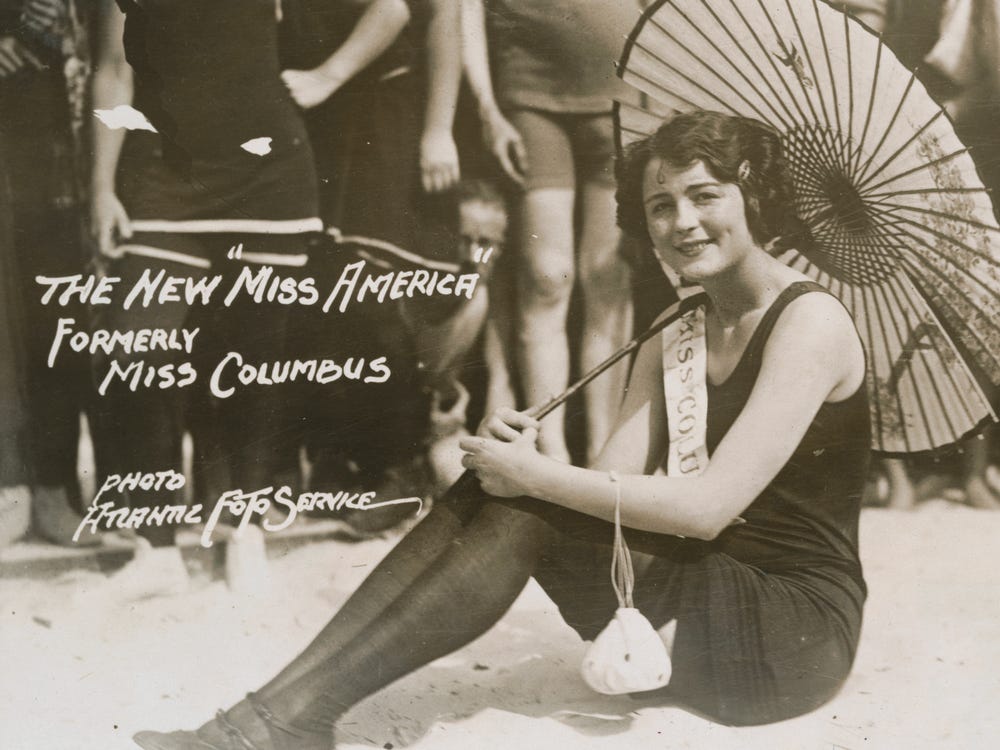 THE NEW "MISS AMERICA"
FORMERLY
MISS COLUMBUS
PHOTO
ATLANTIC FOTO SERVICE
MISS COLU